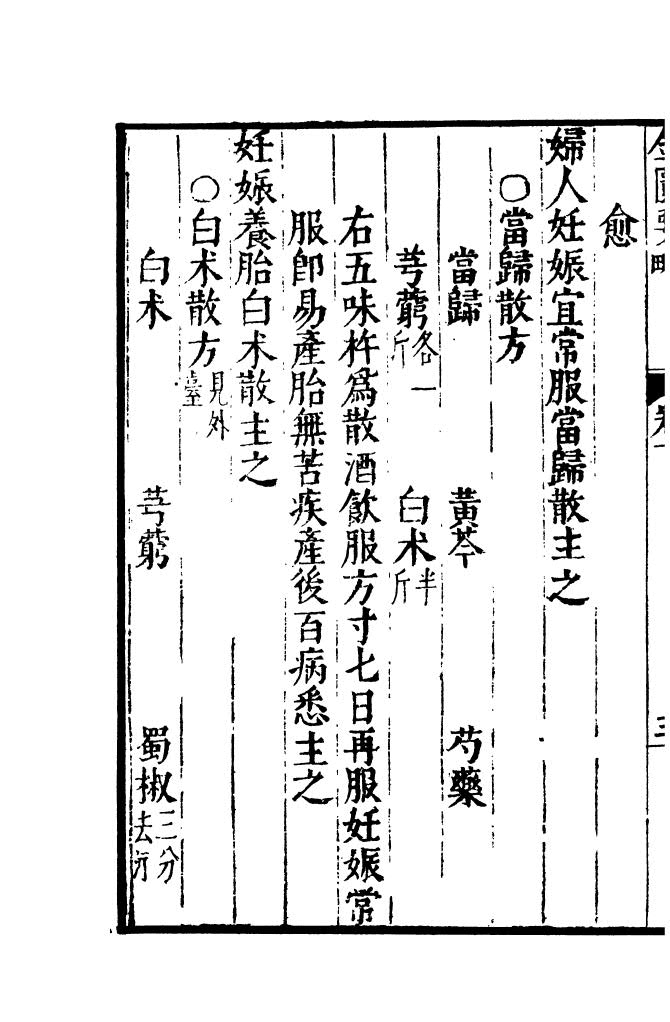 愈
婦人妊娠宜常服當歸散主之
○當歸散方
當歸 黃芩 芍藥
芎藭各一斤 白术半斤
右五味杵爲散酒飲服方寸七日再服妊娠常
服卽易產胎無苦疾產後百病悉主之
妊娠養胎白术散主之
○白术散方見外臺
白术 芎藭 蜀椒三分去汗